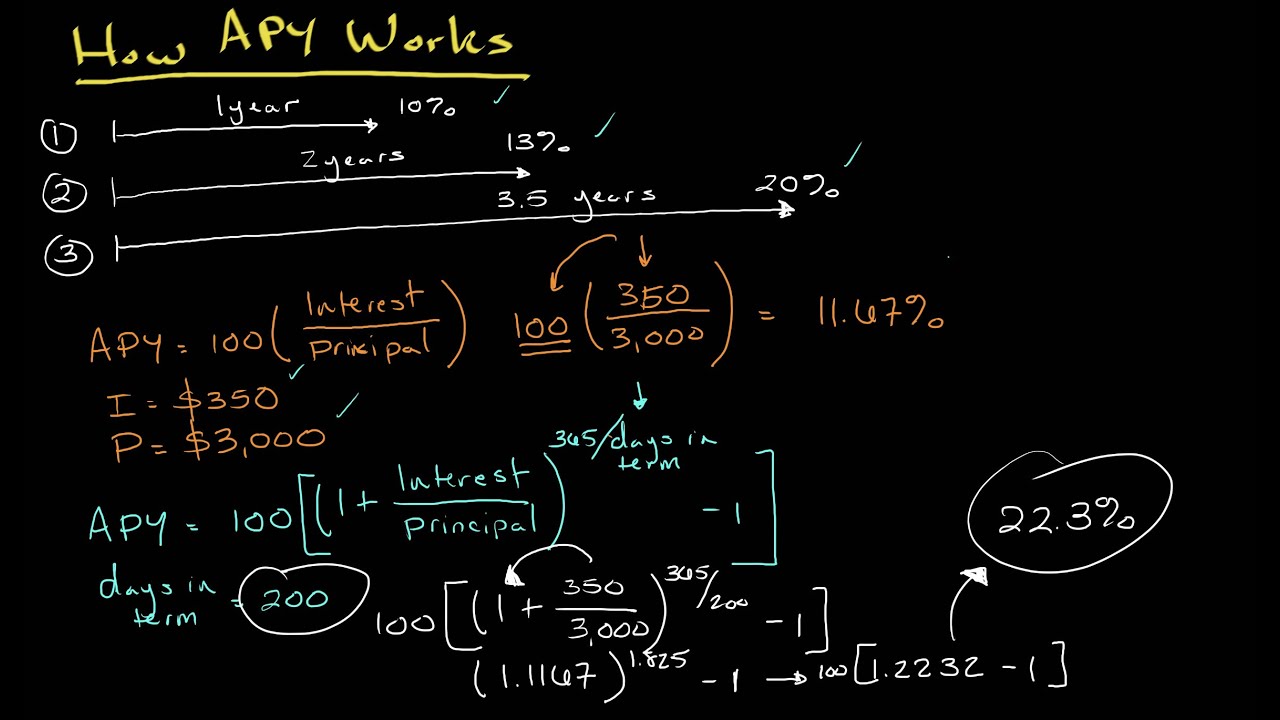 How APY Works
1 year 10% ✓
① 13% ✓
2 years
② 20% ✓
3.5 years
③
APY = 100 (Interest / Principal) 100 (350 / 3,000) = 11.67%
I = $350 ✓
P = $3,000 ✓
APY = 100 [(1 + Interest / Principal)^365/days in term - 1]
days in term = 200
22.3%
100 [(1 + 350 / 3,000)^365/200 - 1]
(1.1167)^1.825 - 1 → 100 [1.2232 - 1]